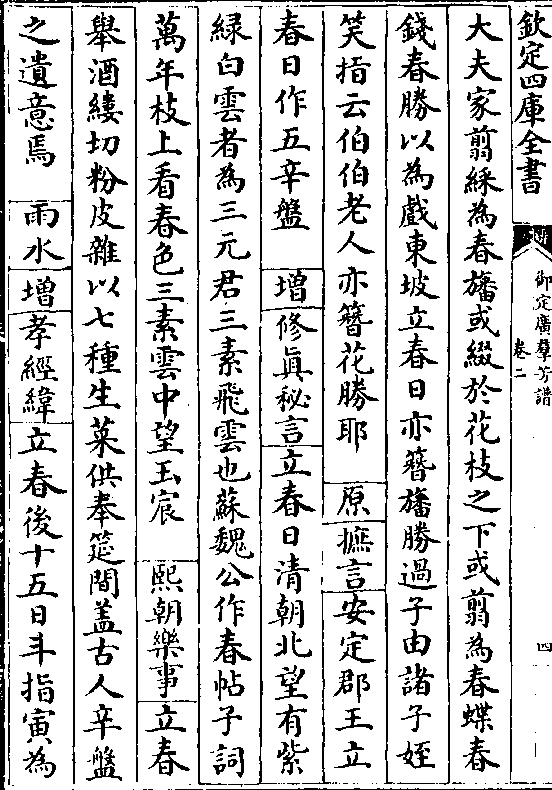 欽定四庫全書
御定廣羣芳譜
卷二
四
大夫家翦綵為春旛或綴於花枝之下或翦為春蝶春
錢春勝以為戲東坡立春日亦簪旛勝過子由諸子姪
笑指云伯伯老人亦簪花勝耶 原 摭言 安定郡王立
春日作五辛盤 增 修眞秘言 立春日清朝北望有紫
緑白雲者為三元君三素飛雲也蘇魏公作春帖子詞
萬年枝上看春色三素雲中望玉宸 熙朝樂事 立春
舉酒縷切粉皮雜以七種生菜供奉筵間蓋古人辛盤
之遺意焉 雨水 增 孝經緯 立春後十五日斗指寅為